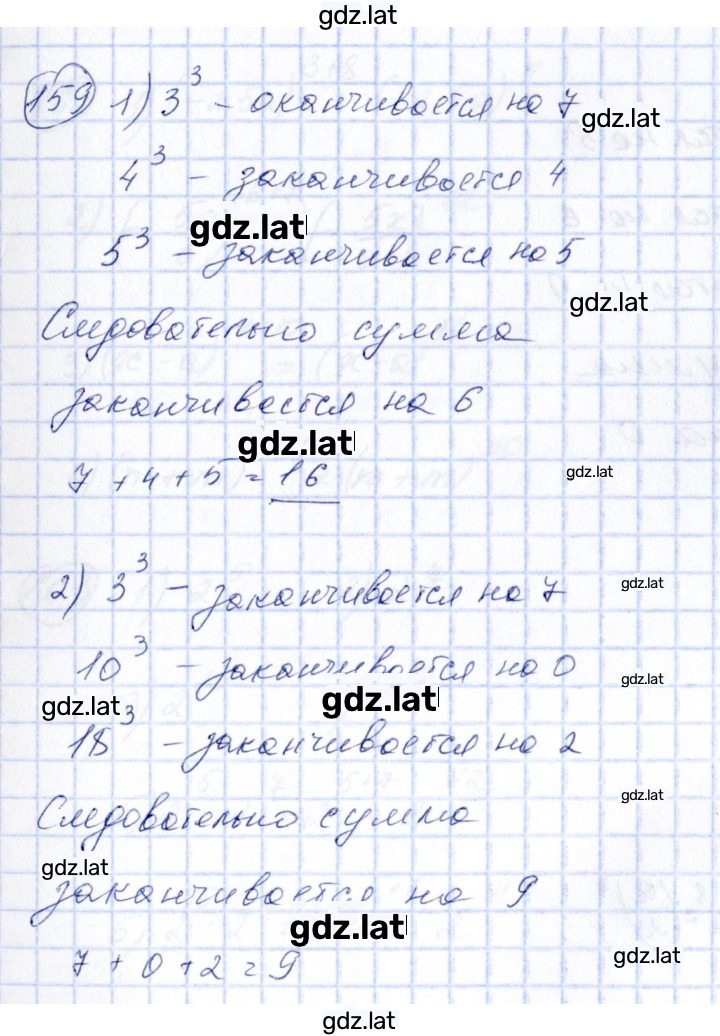 gdz.lat
159 1) 3³ - оканчивается на 7
gdz.lat
4³ - заканчивается 4
gdz.lat
5³ - заканчивается на 5
gdz.lat
Следовательно сумма
заканчивается на 6
gdz.lat
7 + 4 + 5 = 16
gdz.lat
2) 3³ - заканчивается на 7
gdz.lat
10³ - заканчивается на 0
gdz.lat
gdz.lat
gdz.lat
18³ - заканчивается на 2
gdz.lat
Следовательно сумма
gdz.lat
заканчивается на 9
gdz.lat
7 + 0 + 2 = 9
gdz.lat
gdz.lat